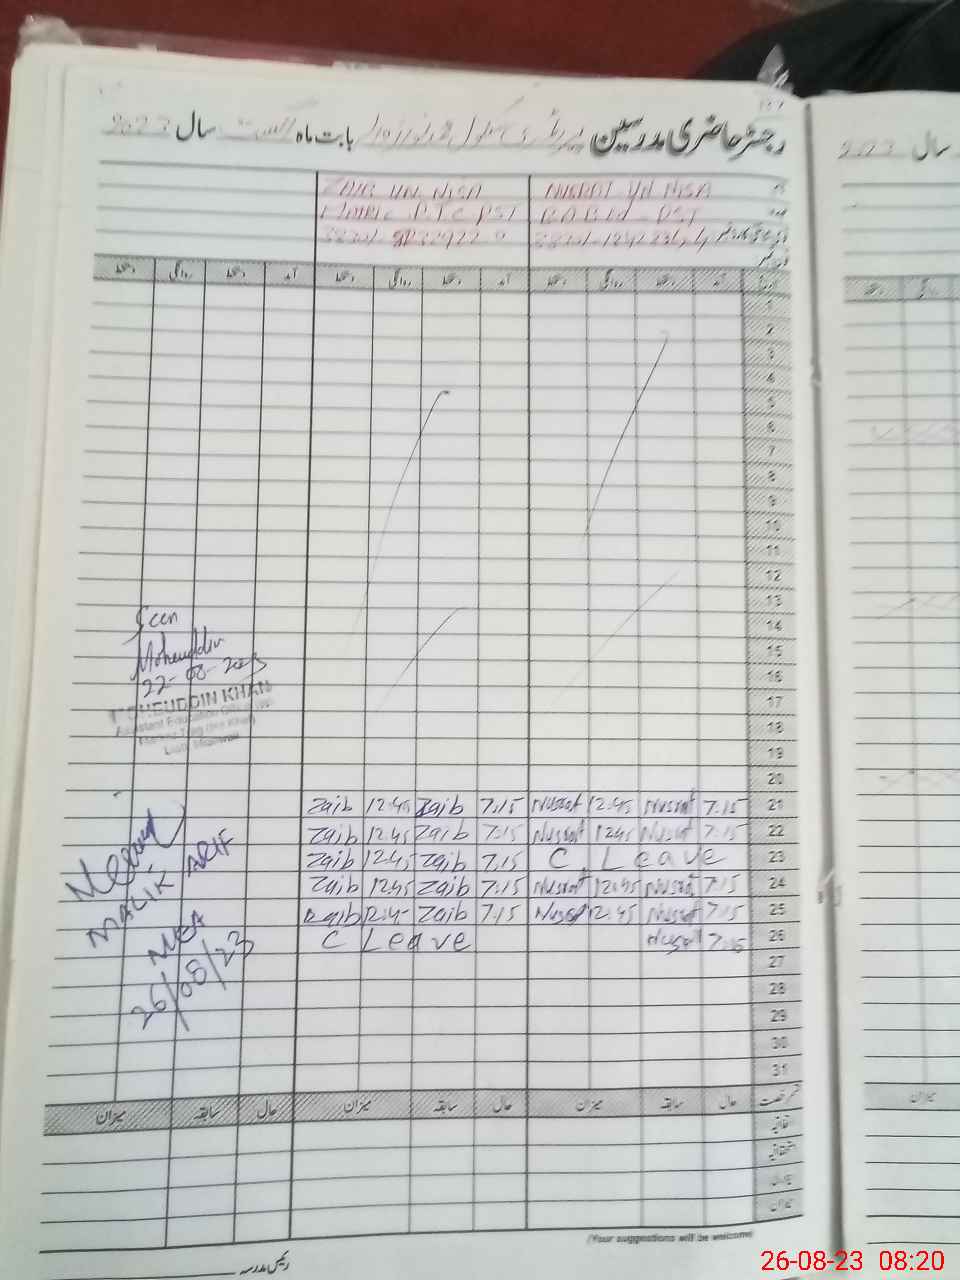 رجسٹر حاضری مدرسین بابت ماہ اگست سال 2023
ZAIB UN NISA NUSRAT UN NISA
PTC PST PST
دستخط روانگی دستخط آمد دستخط روانگی دستخط آمد دستخط روانگی دستخط آمد
1
2
3
4
5
6
7
8
9
10
11
12
13
14
15
16
17
18
19
20
Seen
Moheuddin
22-08-2023
MOHEUDDIN KHAN
Assistant Education Officer
Zaib 12:45 Zaib 7:15 Nusrat 12:45 Nusrat 7:15 21
Zaib 12:45 Zaib 7:15 Nusrat 12:45 Nusrat 7:15 22
Zaib 12:45 Zaib 7:15 C. Leave 23
Zaib 12:45 Zaib 7:15 Nusrat 12:45 Nusrat 7:15 24
Zaib 12:45 Zaib 7:15 Nusrat 12:45 Nusrat 7:15 25
C Leave Nusrat 7:15 26
27
28
29
30
31
MALIK ARIF
MEA
26/08/23
میزان سابقہ حال میزان سابقہ حال میزان سابقہ حال
اتفاقیہ
میزان
(Your suggestions will be welcome)
رئیس مدرسہ
سال 2023
26-08-23 08:20